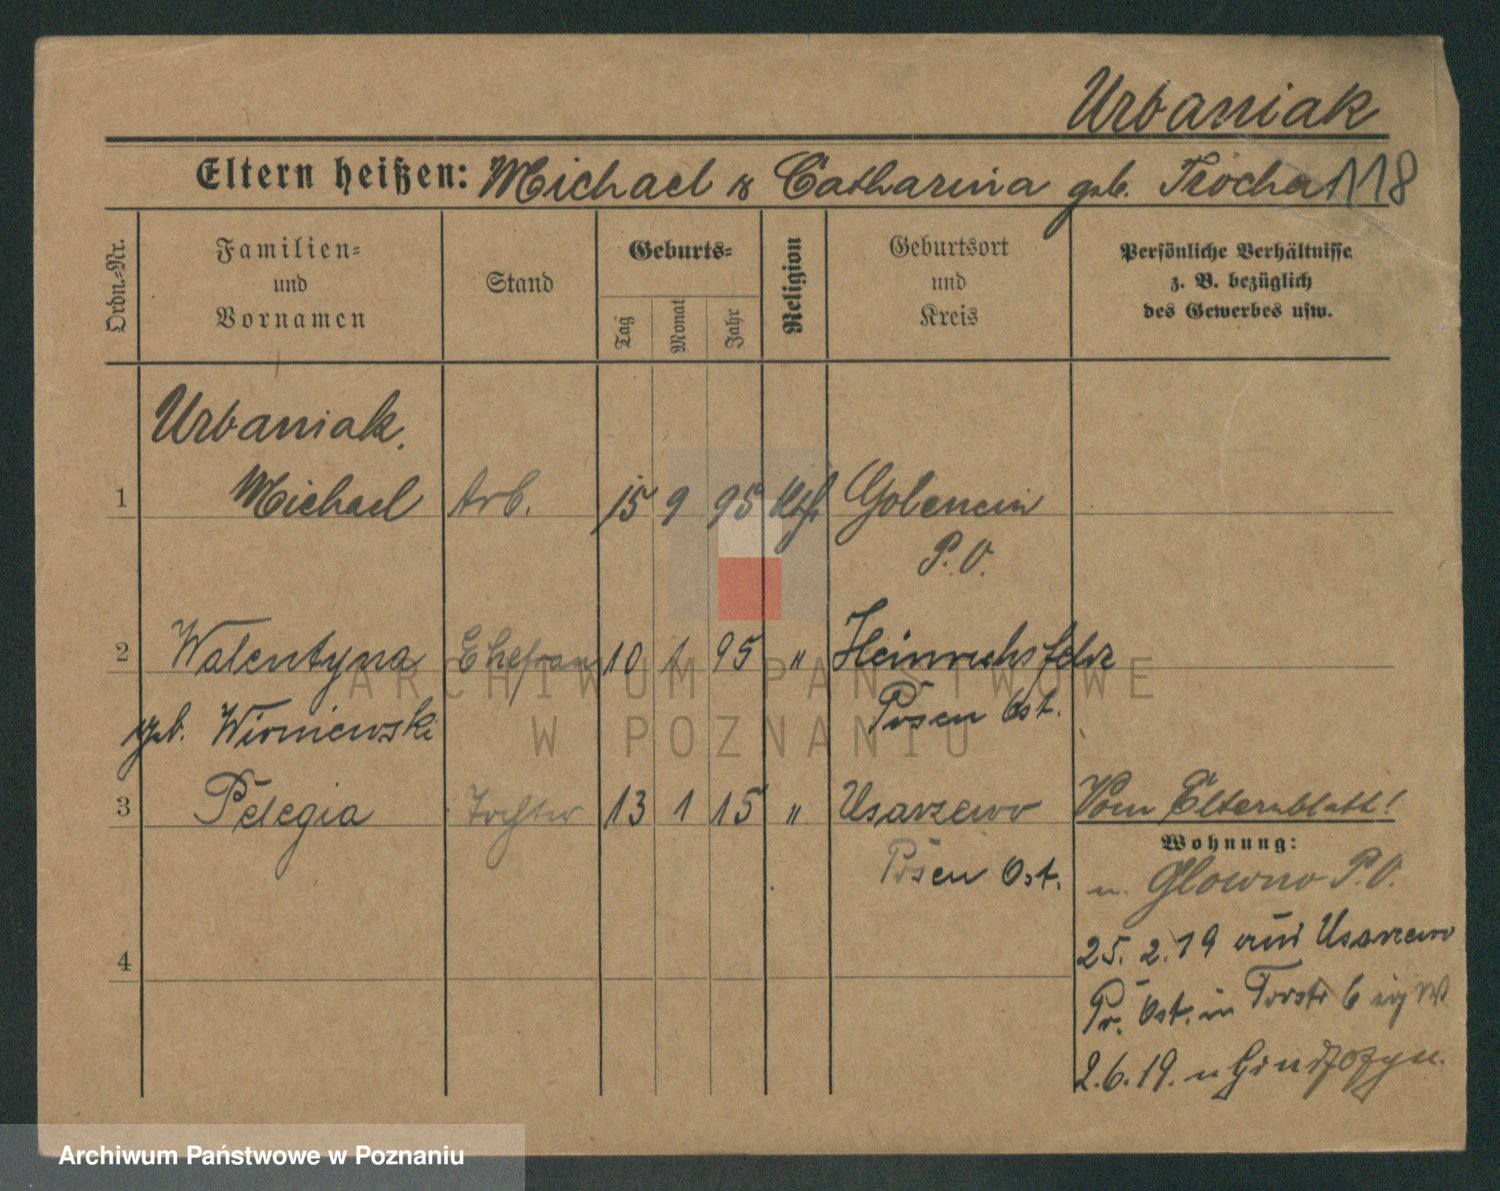 Urbaniak
Eltern heißen: Michael & Catharina geb. Trocha 118
Ordn.-Nr.
Familien-
und
Vornamen
Stand
Geburts-
Tag
Monat
Jahr
Religion
Geburtsort
und
Kreis
Persönliche Verhältnisse
z. B. bezüglich
des Gewerbes usw.
Urbaniak.
1 Michael Arb. 15 9 95 kath. Golencin
P. O.
2 Walentyna Ehefrau 10 1 95 " Heinrichsfelde
geb. Wisniewski Posen Ost.
3 Pelegia Tochter 13 1 15 " Usarzewo
Posen Ost.
Vom Elternblatt!
Wohnung:
n. Glowno P. O.
25. 2. 19 aus Usarzewo
4
Po. Ost. in Torstr 6
2. 6. 19. n
ARCHIWUM PAŃSTWOWE
W POZNANIU
Archiwum Państwowe w Poznaniu